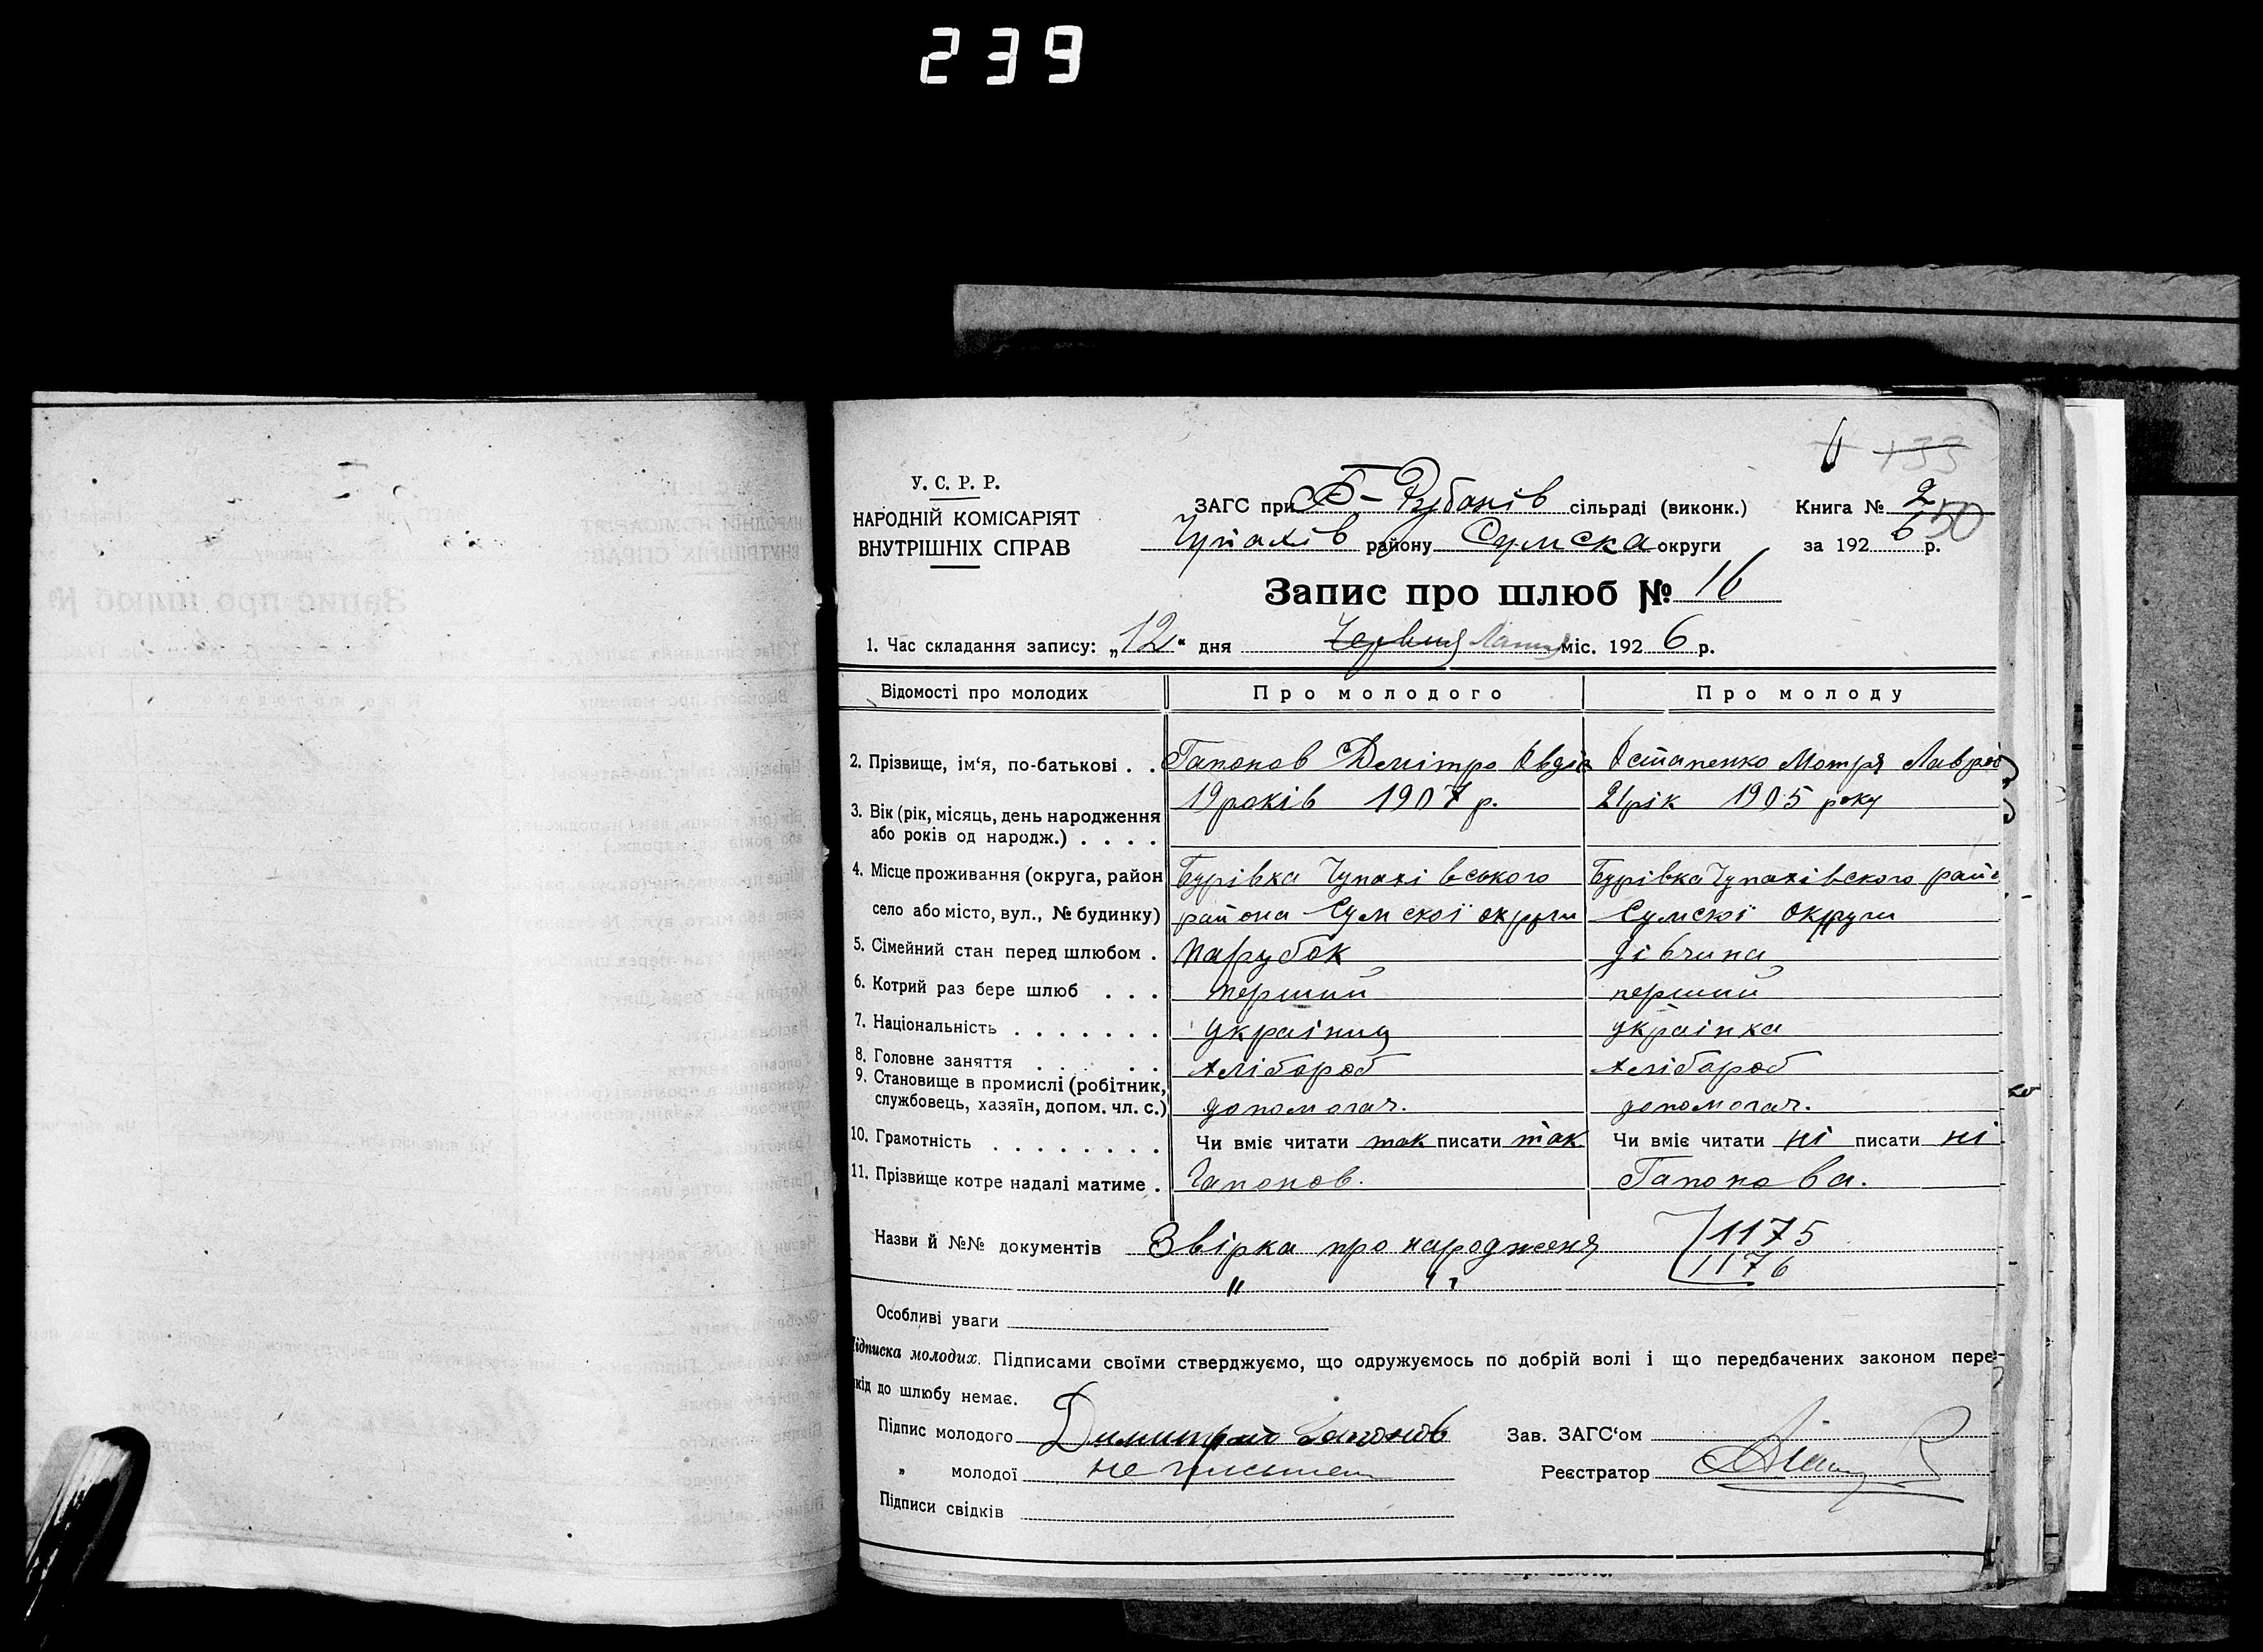 239
6 133
У. С. Р. Р.
НАРОДНІЙ КОМІСАРІЯТ
ВНУТРІШНІХ СПРАВ
ЗАГС при Б-Рубанів сільраді (виконк.) Книга № 2
50
Чупахів району Сумска округи за 1926 р.
Запис про шлюб № 16
1. Час складання запису: „12“ дня Червня міс. 1926 р.
Відомості про молодих Про молодого Про молоду
2. Прізвище, ім‘я, по-батькові . . Гапонов Дмітро Овдів Остапенко Мотря Лавров
3. Вік (рік, місяць, день народження 19 років 1907 р. 21 рік 1905 року
або років од народж.) . . . .
4. Місце проживання (округа, район Бурівка Чупахівського Бурівка Чупахівского райо
село або місто, вул., № будинку) района Сумскої округи Сумскї округи
5. Сімейний стан перед шлюбом . парубок дівчина
6. Котрий раз бере шлюб . . . перший перший
7. Національність . . . . . . . українц українка
8. Головне заняття . . . . . хлібороб хлібороб
9. Становище в промислі (робітник,
службовець, хазяїн, допом. чл. с.) допомогач. допомогач.
10. Грамотність . . . . . . . . Чи вміє читати так писати так Чи вміє читати ні писати ні
11. Прізвище котре надалі матиме . Гапонов. Гапонова.
Назви й №№ документів Звірка про народженя 1175
" " 1176
Особливі уваги
ідписка молодих. Підписами своїми стверджуємо, що одружуємось по добрій волі і що передбачених законом пере-
кід до шлюбу немає.
Підпис молодого Димитрий Гапонов Зав. ЗАГС‘ом
„ молодої не письмен Реєстратор
Підписи свідків